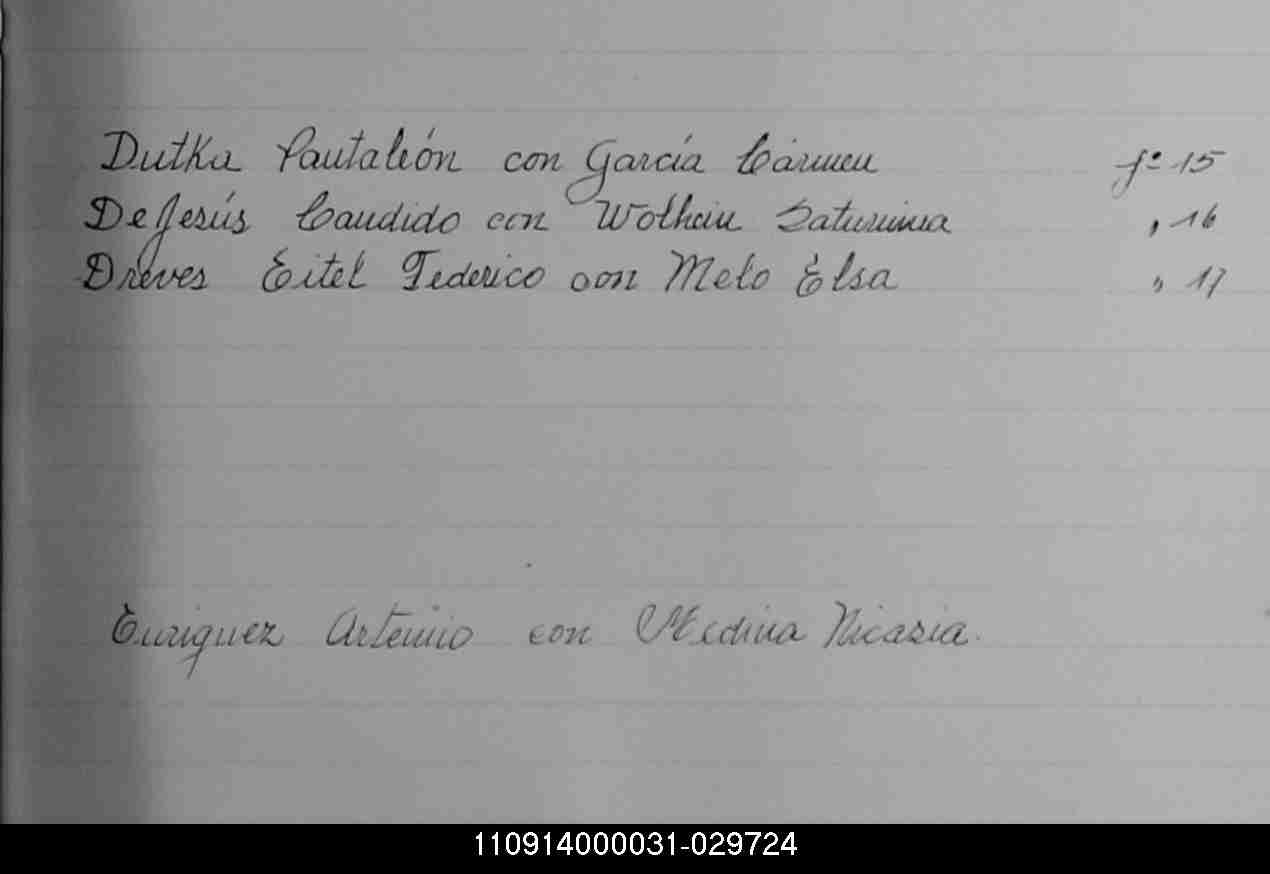 Dutka Pantaleón con García Cármen fº 15
De Jesús Candido con Wolhein Saturnina " 16
Dreves Eitel Federico con Melo Elsa " 17
Enriquez Artemio con Medina Nicasia.
110914000031-029724